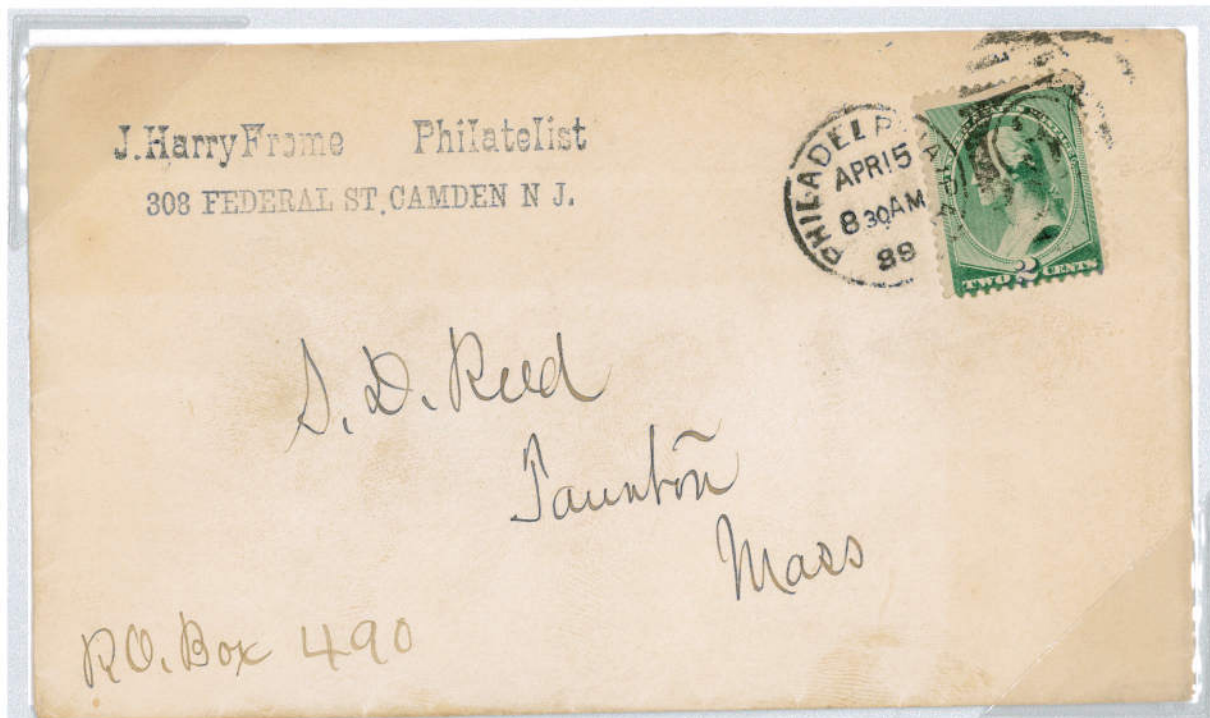 J. Harry Frome Philatelist
308 FEDERAL ST. CAMDEN N J.
PHILADELPHIA
APR 15
8 30 AM
88
TWO 2 CENTS
S. D. Reed
Taunton
Mass
P.O. Box 490